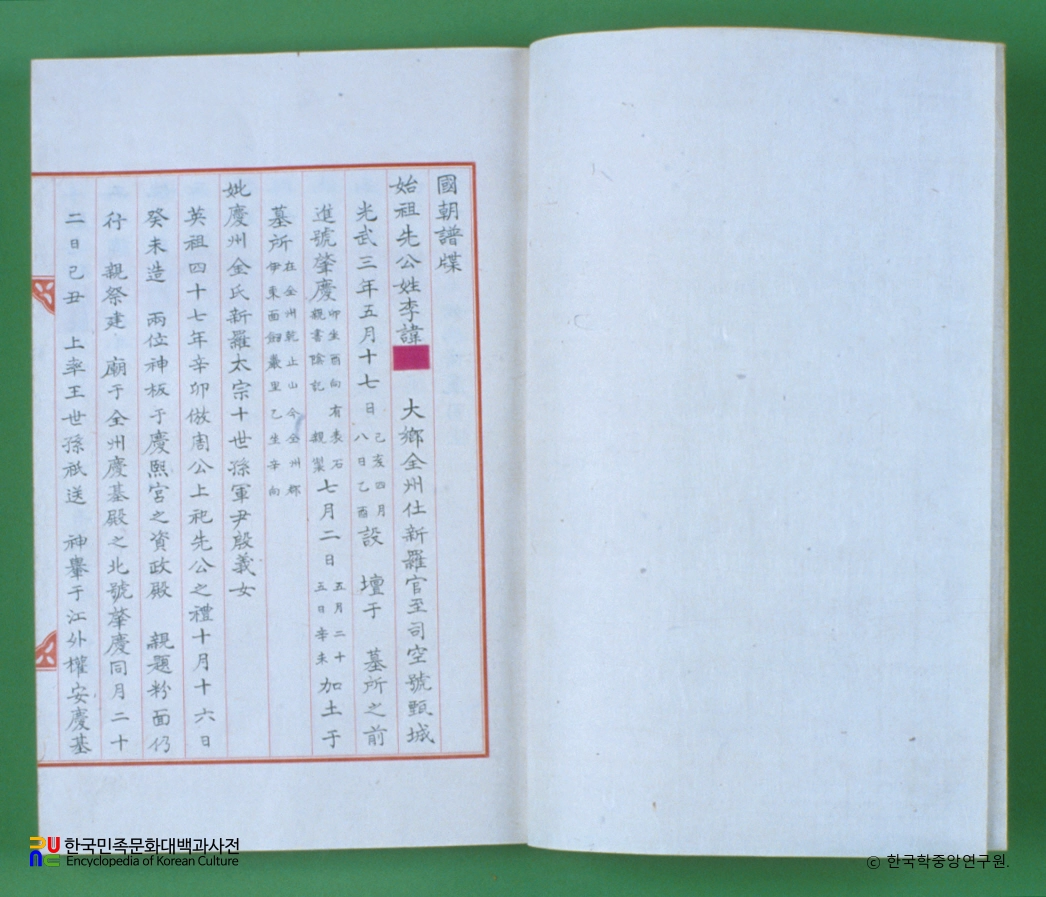 國朝譜牒
始祖先公姓李諱 大鄉全州仕新羅官至司空號甄城
光武三年五月十七日己亥四月八日乙酉設 壇于 墓所之前
進號肇慶卯坐酉向有表石親書陰記 親製七月二日五月二十五日辛未加土于
墓所在全州乾止山今全州郡伊東面巖里乙坐辛向
妣慶州金氏新羅太宗十世孫軍尹殷義女
英祖四十七年辛卯倣周公上祀先公之禮十月十六日
癸未造 兩位神板于慶熙宮之資政殿 親題粉面仍
行 親祭建 廟于全州慶基殿之北號肇慶同月二十
二日己丑 上率王世孫祇送 神轝于江外權安慶基
한국민족문화대백과사전
Encyclopedia of Korean Culture
© 한국학중앙연구원.